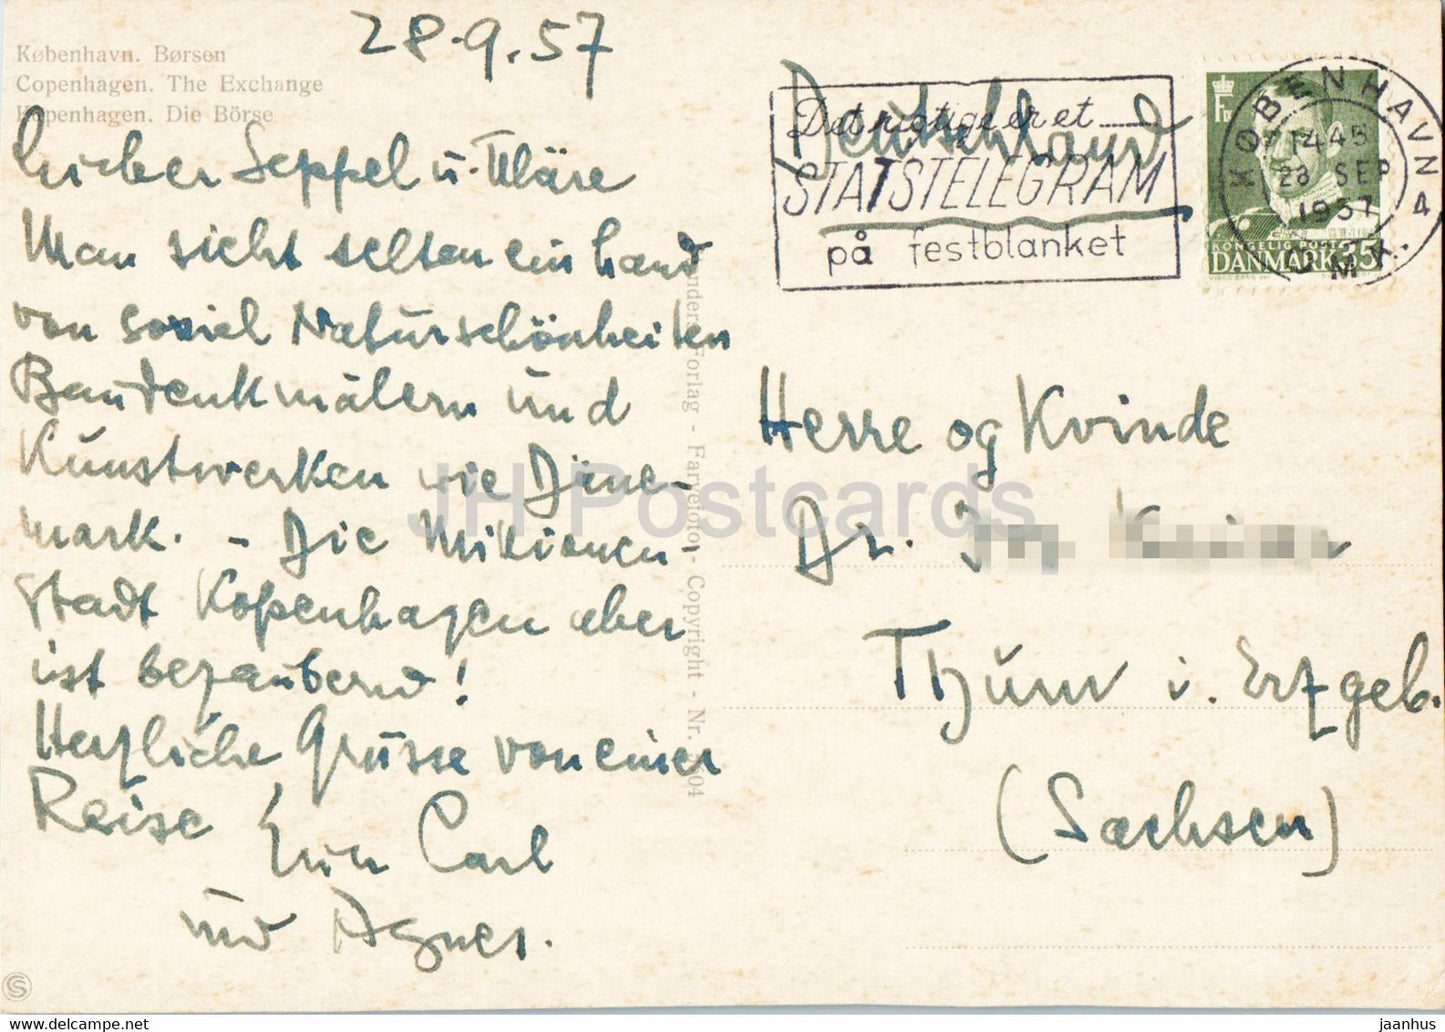 28.9.57
København. Børsen
Copenhagen. The Exchange
Kopenhagen. Die Börse
Lieber Seppel u. Kläre
Man sieht selten ein Land
von soviel Naturschönheiten
Baudenkmälern und
Kunstwerken wie Däne-
mark. - Die Millionen-
stadt Kopenhagen aber
ist bezaubernd!
Herzliche Grüsse von einer
Reise Euer Carl
und Agnes.
Forlag - Farvefoto - Copyright - Nr.
Deutschland
Det rigtige er et
STATSTELEGRAM
på festblanket
KØBENHAVN
1445
28 SEP
1957
OMK.
KONGELIG POST
DANMARK 35
Herre og Kvinde
Dr.
Thum i. Erzgeb.
(Sachsen)
JH Postcards
S
jaanhus
jaanhus.com